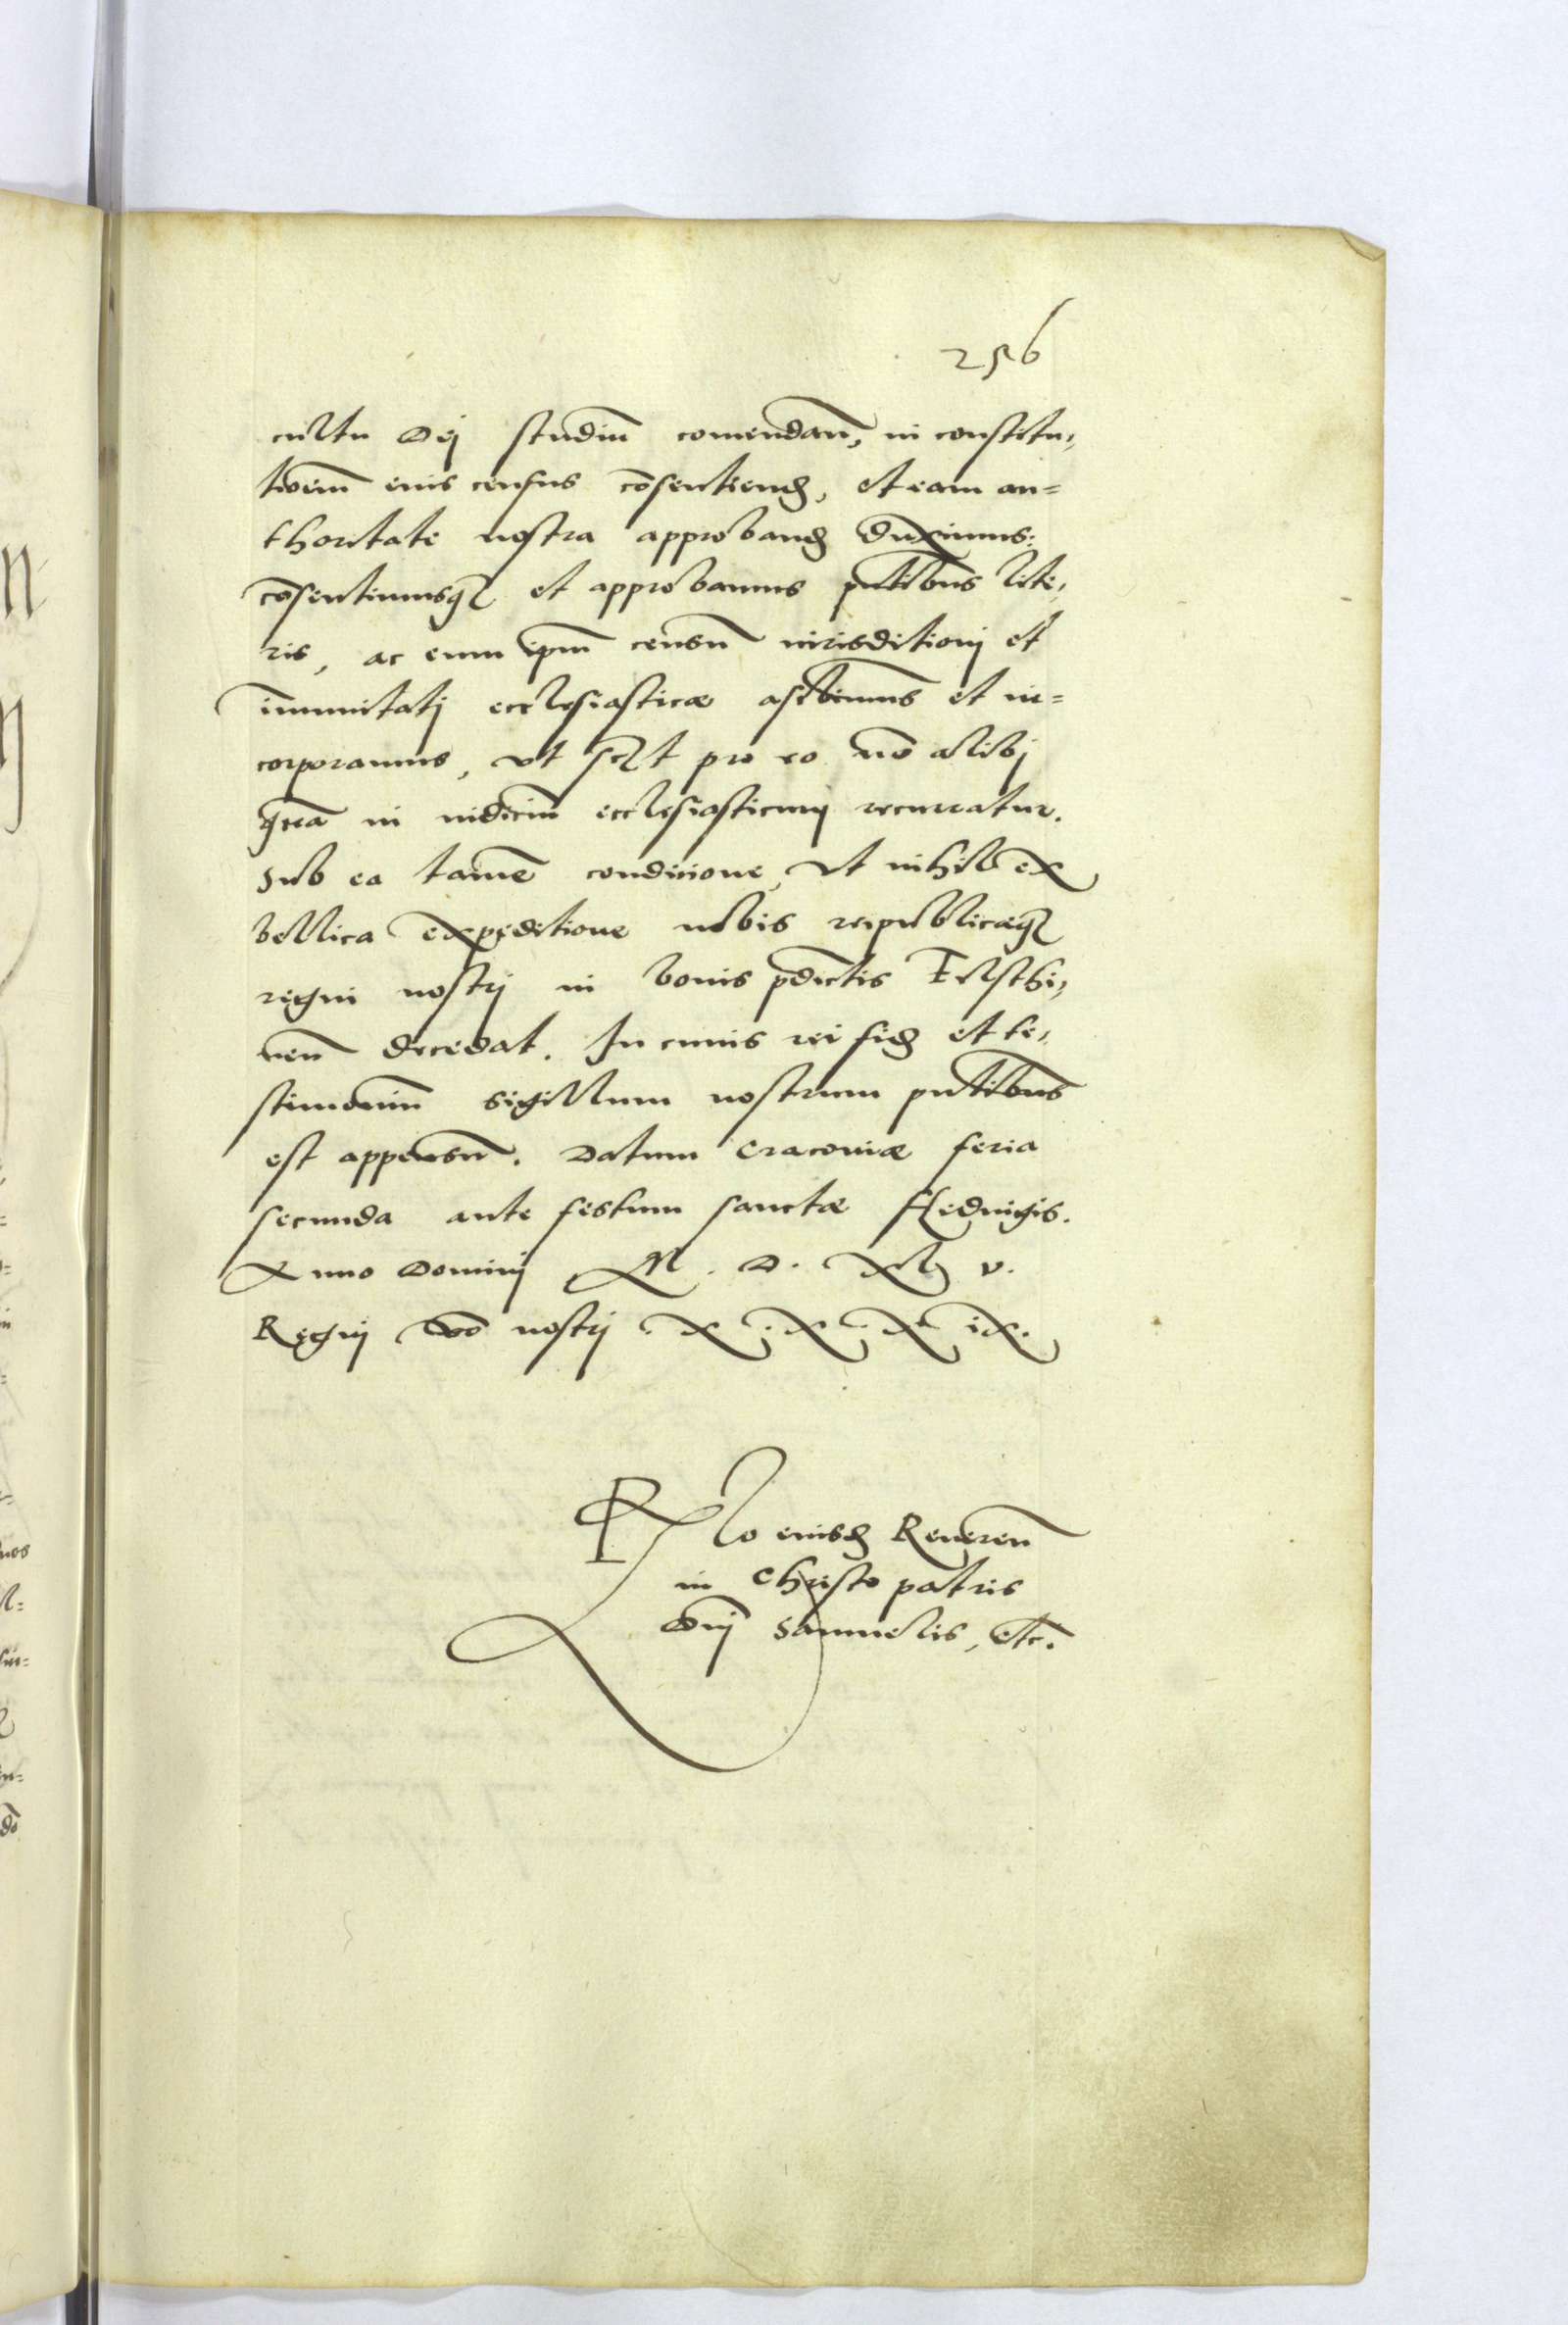 256
cultu Dej studiū comendan̄, in constitu,
tioem̄ eius census cōsentiend, et eam au=
thoritate nostra approband duximus:
cōsentimusq et approbamus pn̄tibus lite,
ris, ac eum ipm̄ censū iurisditionj et
im̄unitatj ecclesiasticæ ascribimus et in=
corporamus, vt sczt pro eo nō alibj
quā in iudiciū ecclesiasticum recurratur.
Sub ea tamē condicione, vt nihil ex
bellica expeditione nobis reipublicæq
regni nostrj in bonis pdictis
nen̄ decedat. In cuius rei fid et te,
stimoniū sigillum nostrum pn̄tibus
est appensū. Datum Cracouiæ feria
secunda ante festum sanctæ Heduigis.
Anno Dominj M. D. XL v.
Regnj vō nostrj . X . X . X ix.
Rlo eiusd Reueren̄
in Christo patris
Dn̄j Samuelis, etc.